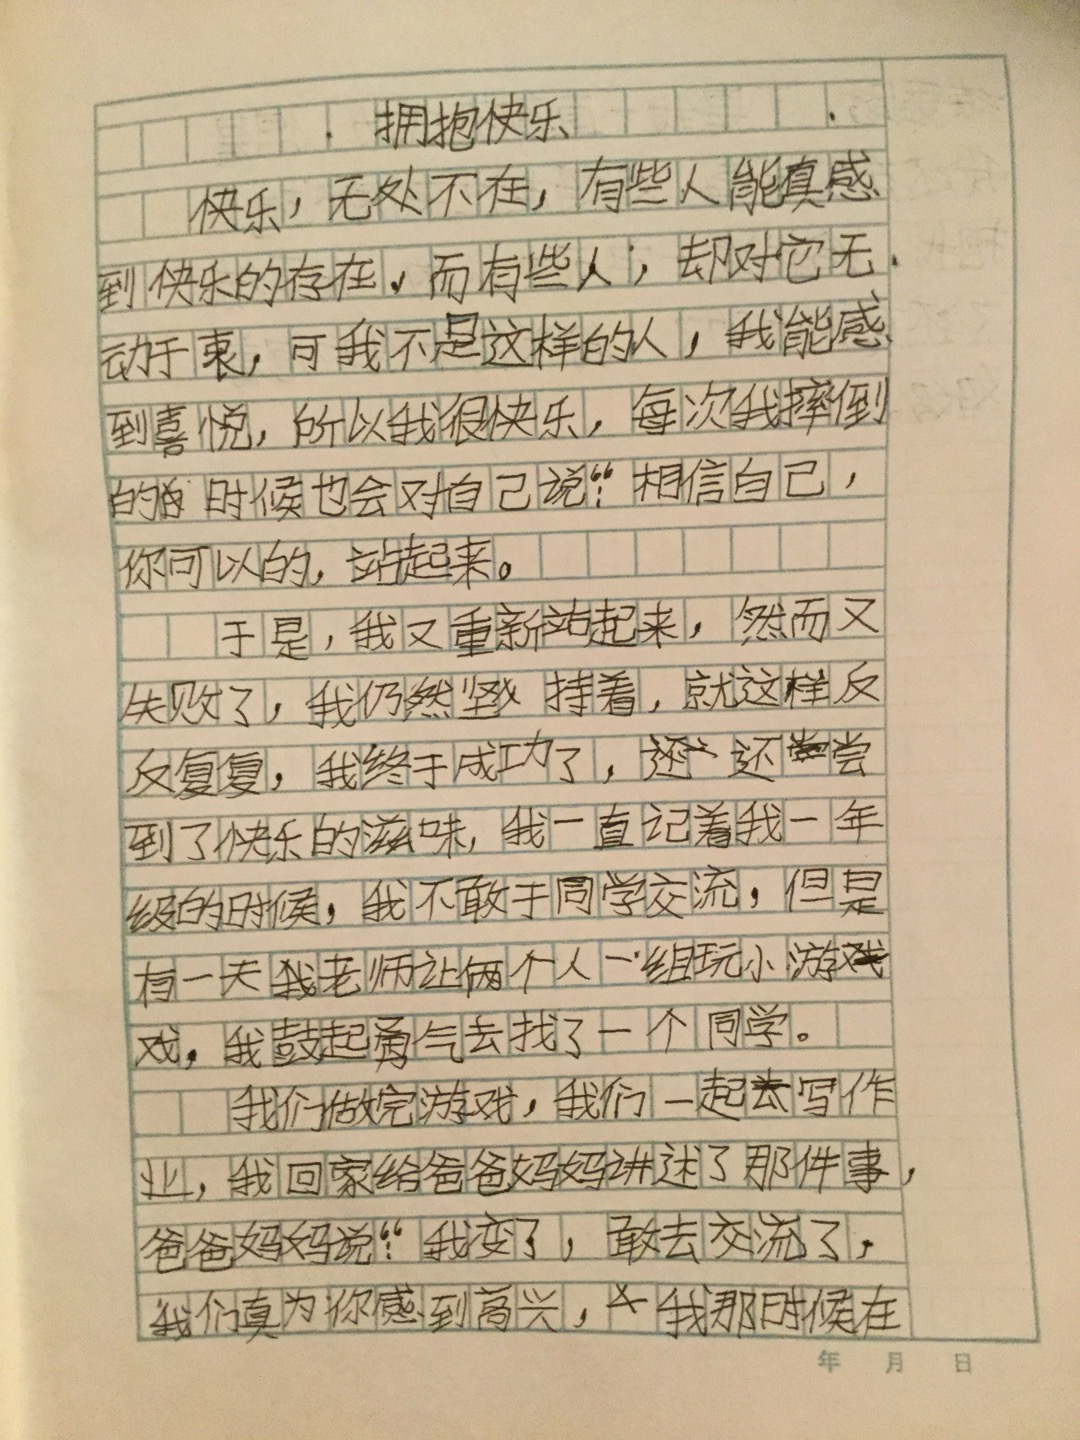 拥抱快乐
快乐，无处不在，有些人能真感
到快乐的存在，而有些人，却对它无
动于衷，可我不是这样的人，我能感
到喜悦，所以我很快乐，每次我摔倒
的时候也会对自己说：“相信自己，
你可以的，站起来。
于是，我又重新站起来，然而又
失败了，我仍然坚持着，就这样反
反复复，我终于成功了，还尝
到了快乐的滋味，我一直记着我一年
级的时候，我不敢于同学交流，但是
有一天我老师让俩个人一组玩小游
戏，我鼓起勇气去找了一个同学。
我们做完游戏，我们一起去写作
业，我回家给爸爸妈妈讲述了那件事，
爸爸妈妈说：“我变了，敢去交流了，
我们真为你感到高兴，我那时候在
年 月 日